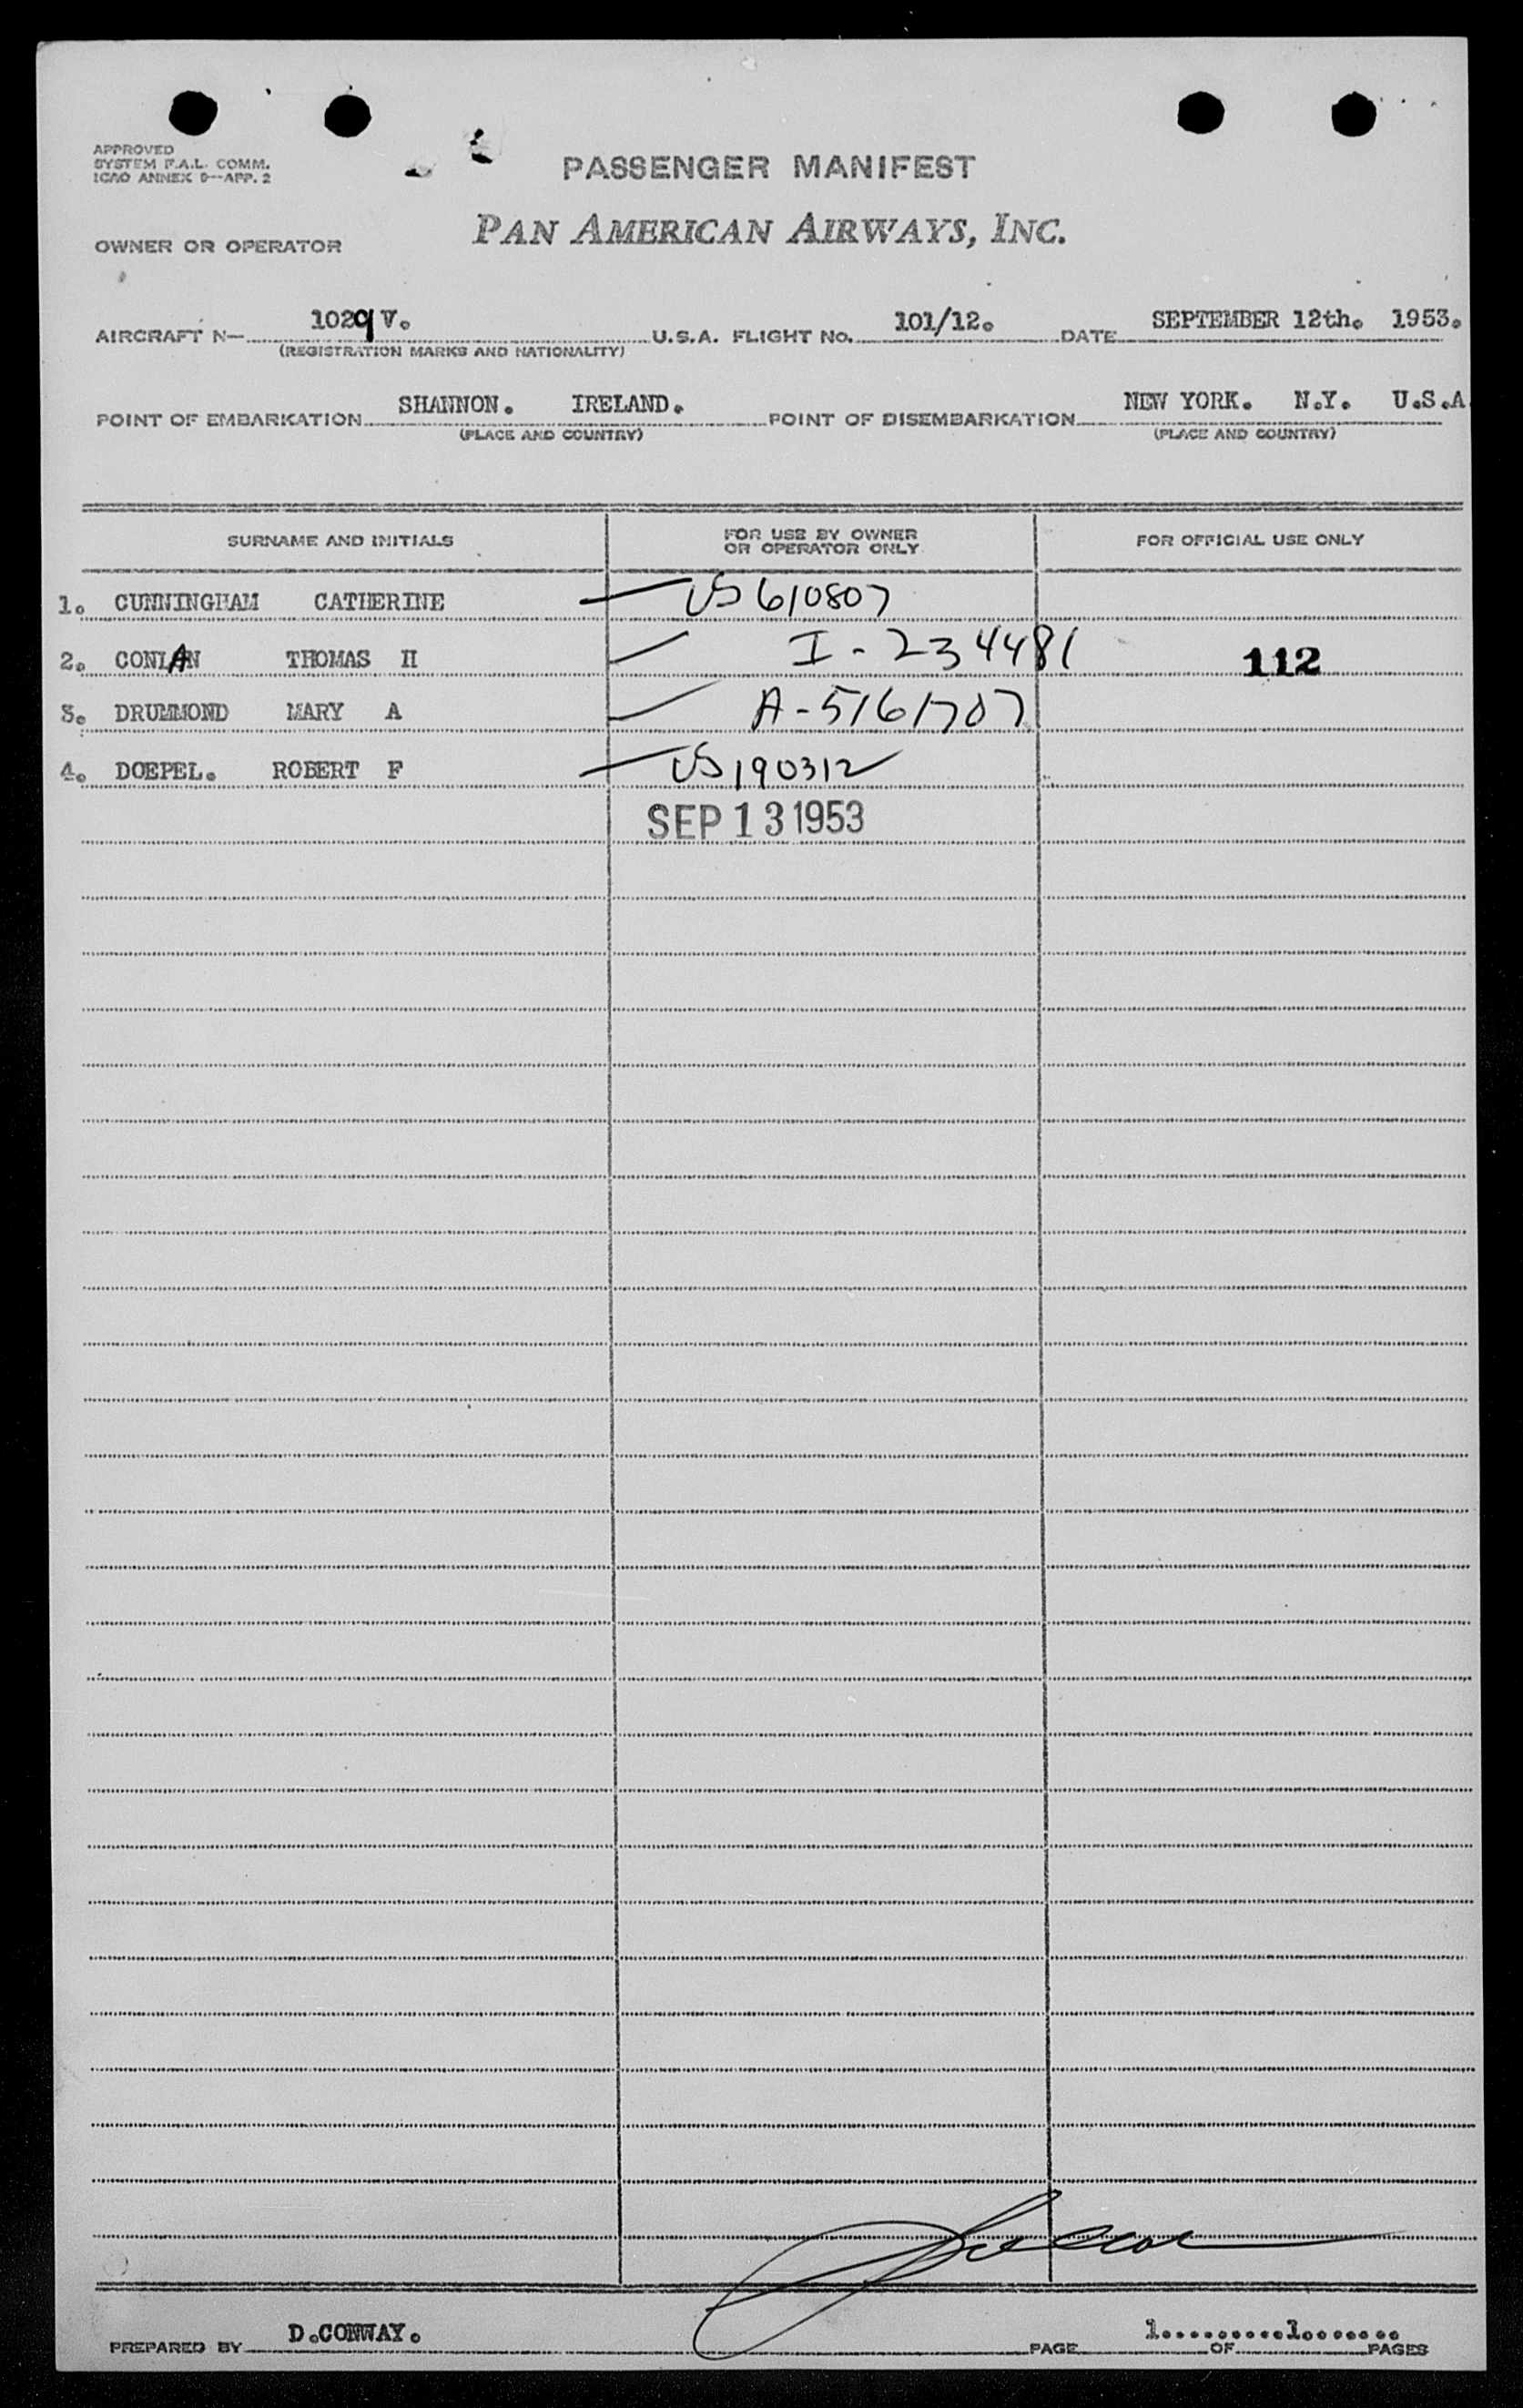 APPROVED
SYSTEM F.A.L. COMM.
ICAO ANNEX 9--APP. 2
PASSENGER MANIFEST
OWNER OR OPERATOR PAN AMERICAN AIRWAYS, INC.
AIRCRAFT N— 1029 V. U.S.A. FLIGHT No. 101/12. DATE SEPTEMBER 12th. 1953.
(REGISTRATION MARKS AND NATIONALITY)
POINT OF EMBARKATION SHANNON. IRELAND. POINT OF DISEMBARKATION NEW YORK. N.Y. U.S.A
(PLACE AND COUNTRY) (PLACE AND COUNTRY)
SURNAME AND INITIALS FOR USE BY OWNER OR OPERATOR ONLY FOR OFFICIAL USE ONLY
1. CUNNINGHAM CATHERINE — US 610807
2. CONLAN THOMAS H — I-234481 112
3. DRUMMOND MARY A — A-5161707
4. DOEPEL. ROBERT F — US190312
SEP 13 1953
PREPARED BY D.CONWAY. PAGE 1 OF 1 PAGES